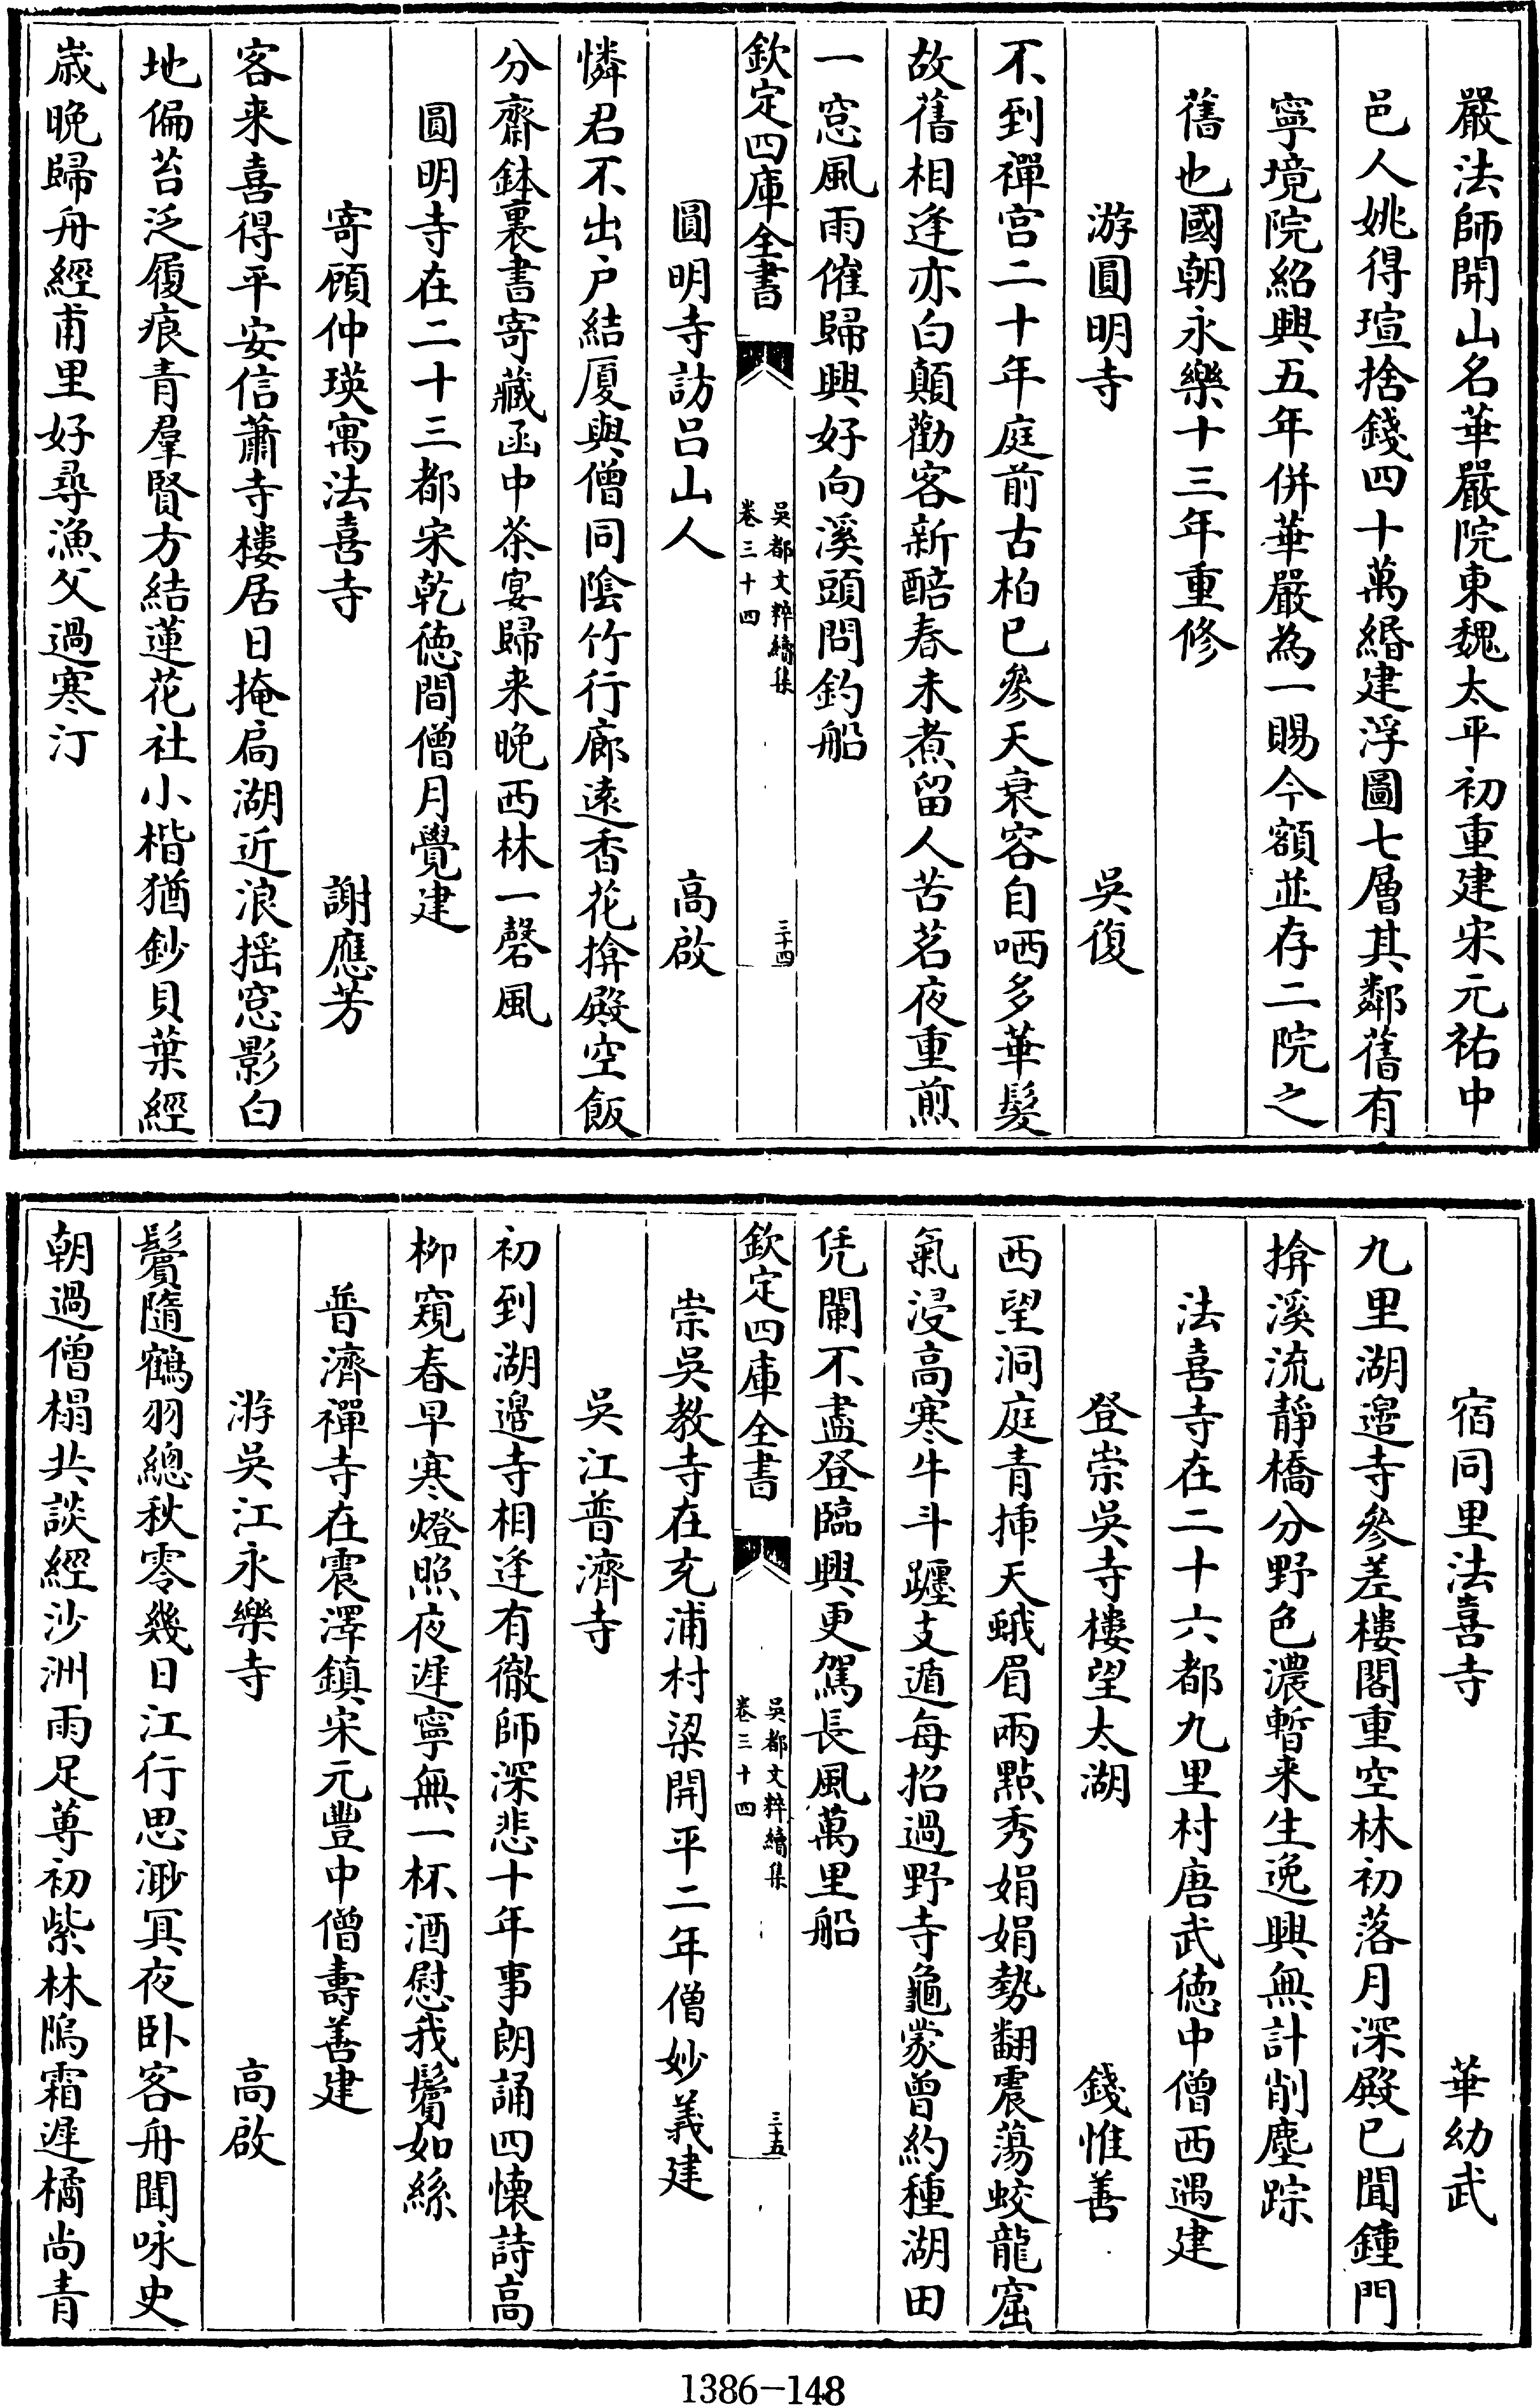 嚴法師開山名華嚴院東魏太平初重建宋元祐中
邑人姚得瑄捨錢四十萬緡建浮圖七層其鄰舊有
寧境院紹興五年併華嚴為一賜今額並存二院之
舊也國朝永樂十三年重修
游圓明寺　吳復
不到禪宫二十年庭前古柏已參天衰容自哂多華髪
故舊相逢亦白顛勸客新醅春未煮留人苦茗夜重煎
一窓風雨催歸興好向溪頭問釣船
欽定四庫全書　吳都文粹續集　卷三十四　三十四
圓明寺訪吕山人　高啟
憐君不出户結厦與僧同陰竹行廊逺香花揜殿空飯
分齋鉢裏書寄藏函中茶宴歸来晚西林一磬風
圓明寺在二十三都宋乾徳間僧月覺建
寄顧仲瑛寓法喜寺　謝應芳
客来喜得平安信蕭寺樓居日掩扃湖近浪揺窓影白
地偏苔泛履痕青羣賢方結蓮花社小楷猶鈔貝葉經
嵗晚歸舟經甫里好尋漁父過寒汀
宿同里法喜寺　華幼武
九里湖邉寺參差樓閣重空林初落月深殿已聞鍾門
揜溪流靜橋分野色濃暫来生逸興無計削塵踪
法喜寺在二十六都九里村唐武徳中僧西遇建
登崇吳寺樓望太湖　錢惟善
西望洞庭青揷天蛾眉兩點秀娟娟勢翻震蕩蛟龍窟
氣浸高寒牛斗躔支遁每招過野寺龜蒙曾約種湖田
凭闌不盡登臨興更駕長風萬里船
欽定四庫全書　吳都文粹續集　卷三十四　三十五
崇吳教寺在充浦村梁開平二年僧妙義建
吳江普濟寺
初到湖邉寺相逢有徹師深悲十年事朗誦四懐詩高
柳窺春早寒燈照夜遲寧無一杯酒慰我鬢如絲
普濟禪寺在震澤鎮宋元豐中僧壽善建
游吳江永樂寺　高啟
鬢隨鶴羽總秋零幾日江行思渺冥夜卧客舟聞咏史
朝過僧榻共談經沙洲雨足蓴初紫林隖霜遲橘尚青
1386-148